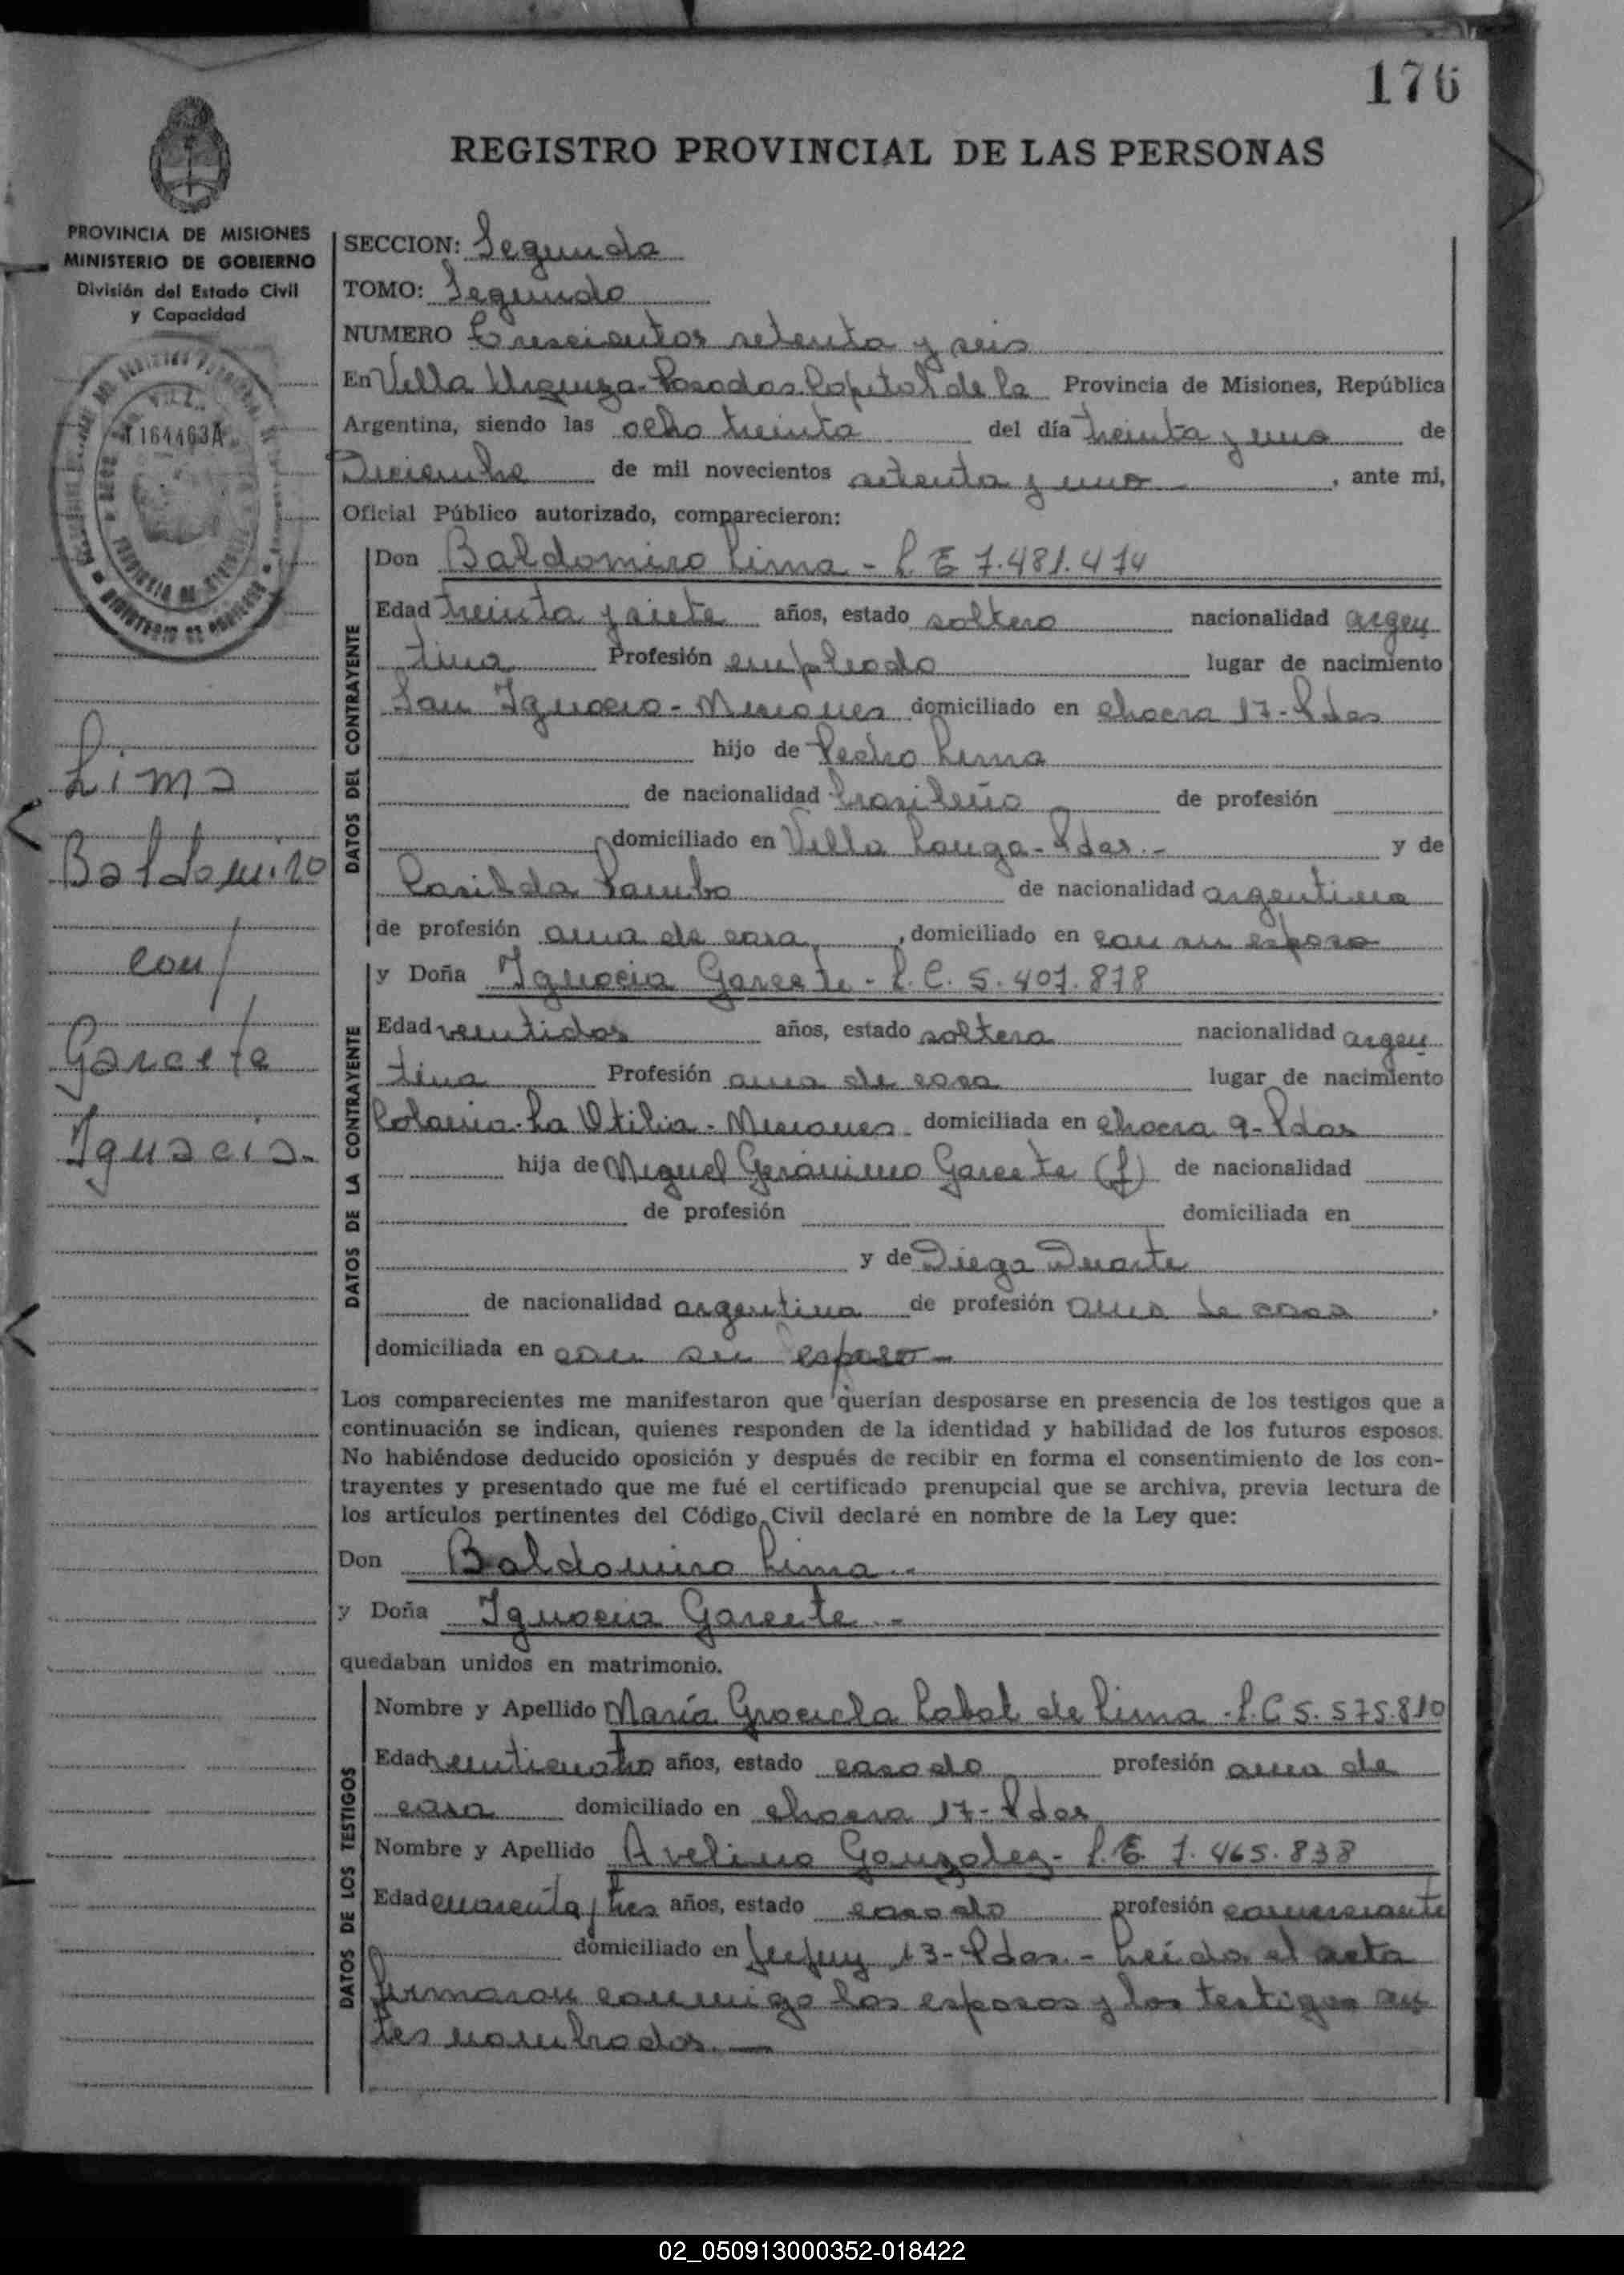 176
REGISTRO PROVINCIAL DE LAS PERSONAS
PROVINCIA DE MISIONES
MINISTERIO DE GOBIERNO
División del Estado Civil
y Capacidad
164463A
Lima
Baldomiro
con
Garcete
Ignacia.
SECCION: Segunda
TOMO: Segundo
NUMERO Trescientos setenta y seis
En Villa Urquiza-Posadas Capital de la Provincia de Misiones, República
Argentina, siendo las ocho treinta del día treinta y uno de
Diciembre de mil novecientos setenta y uno , ante mi,
Oficial Público autorizado, comparecieron:
DATOS DEL CONTRAYENTE
Don Baldomiro Lima - L E 7.481.474
Edad treinta y siete años, estado soltero nacionalidad argen
tina Profesión empleado lugar de nacimiento
San Ignacio - Misiones domiciliado en chacra 17-Pdas
hijo de Pedro Lima
de nacionalidad brasileño de profesión
domiciliado en Villa Longa-Pdas.- y de
Casilda de nacionalidad argentina
de profesión ama de casa , domiciliado en con su esposo
DATOS DE LA CONTRAYENTE
y Doña Ignacia Garcete - L.C. 5.407.878
Edad veintidos años, estado soltera nacionalidad argen
tina Profesión ama de casa lugar de nacimiento
Colonia-La Otilia-Misiones domiciliada en chacra 9-Pdas
hija de Miguel Gerónimo Garcete (f) de nacionalidad
de profesión domiciliada en
y de Diega Duarte
de nacionalidad argentina de profesión ama de casa .
domiciliada en con su esposo-
Los comparecientes me manifestaron que querían desposarse en presencia de los testigos que a
continuación se indican, quienes responden de la identidad y habilidad de los futuros esposos.
No habiéndose deducido oposición y después de recibir en forma el consentimiento de los con-
trayentes y presentado que me fué el certificado prenupcial que se archiva, previa lectura de
los artículos pertinentes del Código Civil declaré en nombre de la Ley que:
Don Baldomiro Lima.-
y Doña Ignacia Garcete.-
quedaban unidos en matrimonio.
DATOS DE LOS TESTIGOS
Nombre y Apellido María Graciela de Lima - L.C 5.575.810
Edad veinticuatro años, estado casado profesión ama de
casa domiciliado en chacra 17-Pdas
Nombre y Apellido Avelino Gonzalez- L.E. 7.465.838
Edad cuarenta y tres años, estado casado profesión comerciante
domiciliado en Jujuy 13-Pdas.- Leida el acta
firmaron conmigo los esposos y los testigos an
tes nombrados.-
02_050913000352-018422